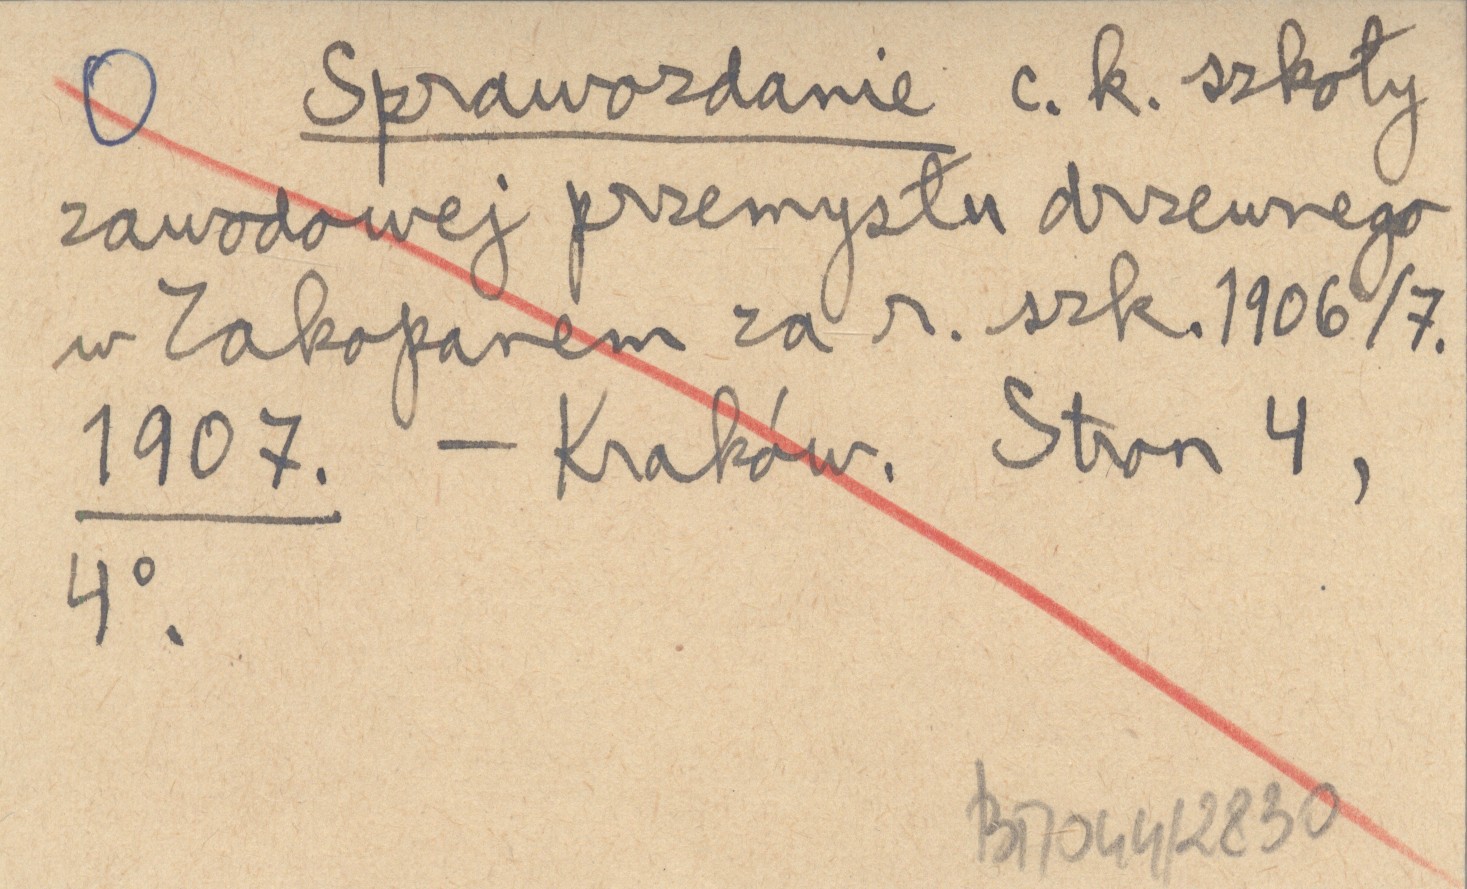 O Sprawozdanie c. k. szkoły
zawodowej przemysłu drzewnego
w Zakopanem za r. szk. 1906/7.
1907. — Kraków. Stron 4,
4°.